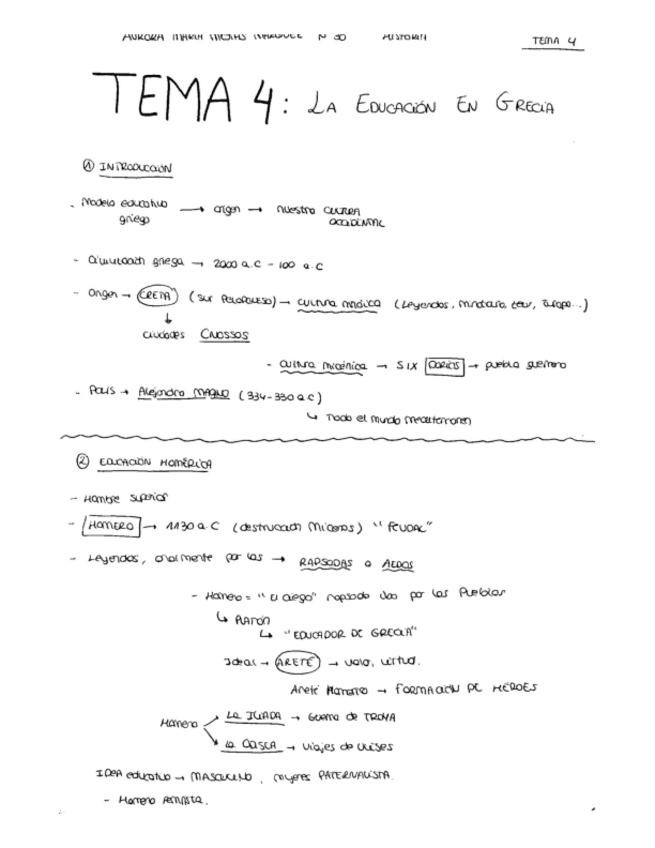 AURORA MARIA Nº 30 HISTORIA
TEMA 4
TEMA 4: LA EDUCACIÓN EN GRECIA
① INTRODUCCIÓN
- Modelo educativo griego → origen → nuestra CULTURA OCCIDENTAL
- Civilización griega → 2000 a.C - 100 a.C
- Origen → CRETA (sur PELOPONESO) → cultura minóica (Leyendas, minotauro, Europa...)
↓
ciudades CNOSSOS
- cultura micénica → S.IX DORIOS → pueblo guerrero
- POLIS → Alejandro MAGNO (334-330 a.C)
↳ Todo el mundo mediterraneo
② EDUCACIÓN HOMÉRICA
- Hombre superior
- HOMERO → 1130 a.C (destrucción Micenas) "FEUDAL"
- Leyendas, oralmente por los → RAPSODAS o AEDOS
- Homero = "El ciego" rapsoda por los Pueblos
↳ PLATÓN
↳ "EDUCADOR DE GRECIA"
Ideal → ARETÉ → valor, virtud.
Areté Homero → FORMACIÓN DE HÉROES
Homero
LA ILIADA → Guerra de TROYA
LA ODISEA → viajes de Ulises
IDEA educativo → MASCULINO, mujeres PATERNALISTA.
- Homero